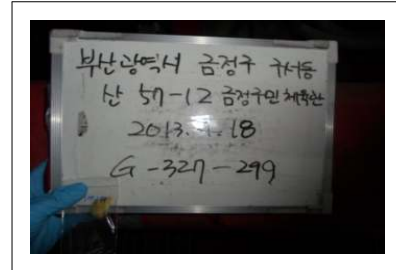 부산광역시 금정구 구서동
산 57-12 금정구민체육관
2013. 9. 18
G-327-299